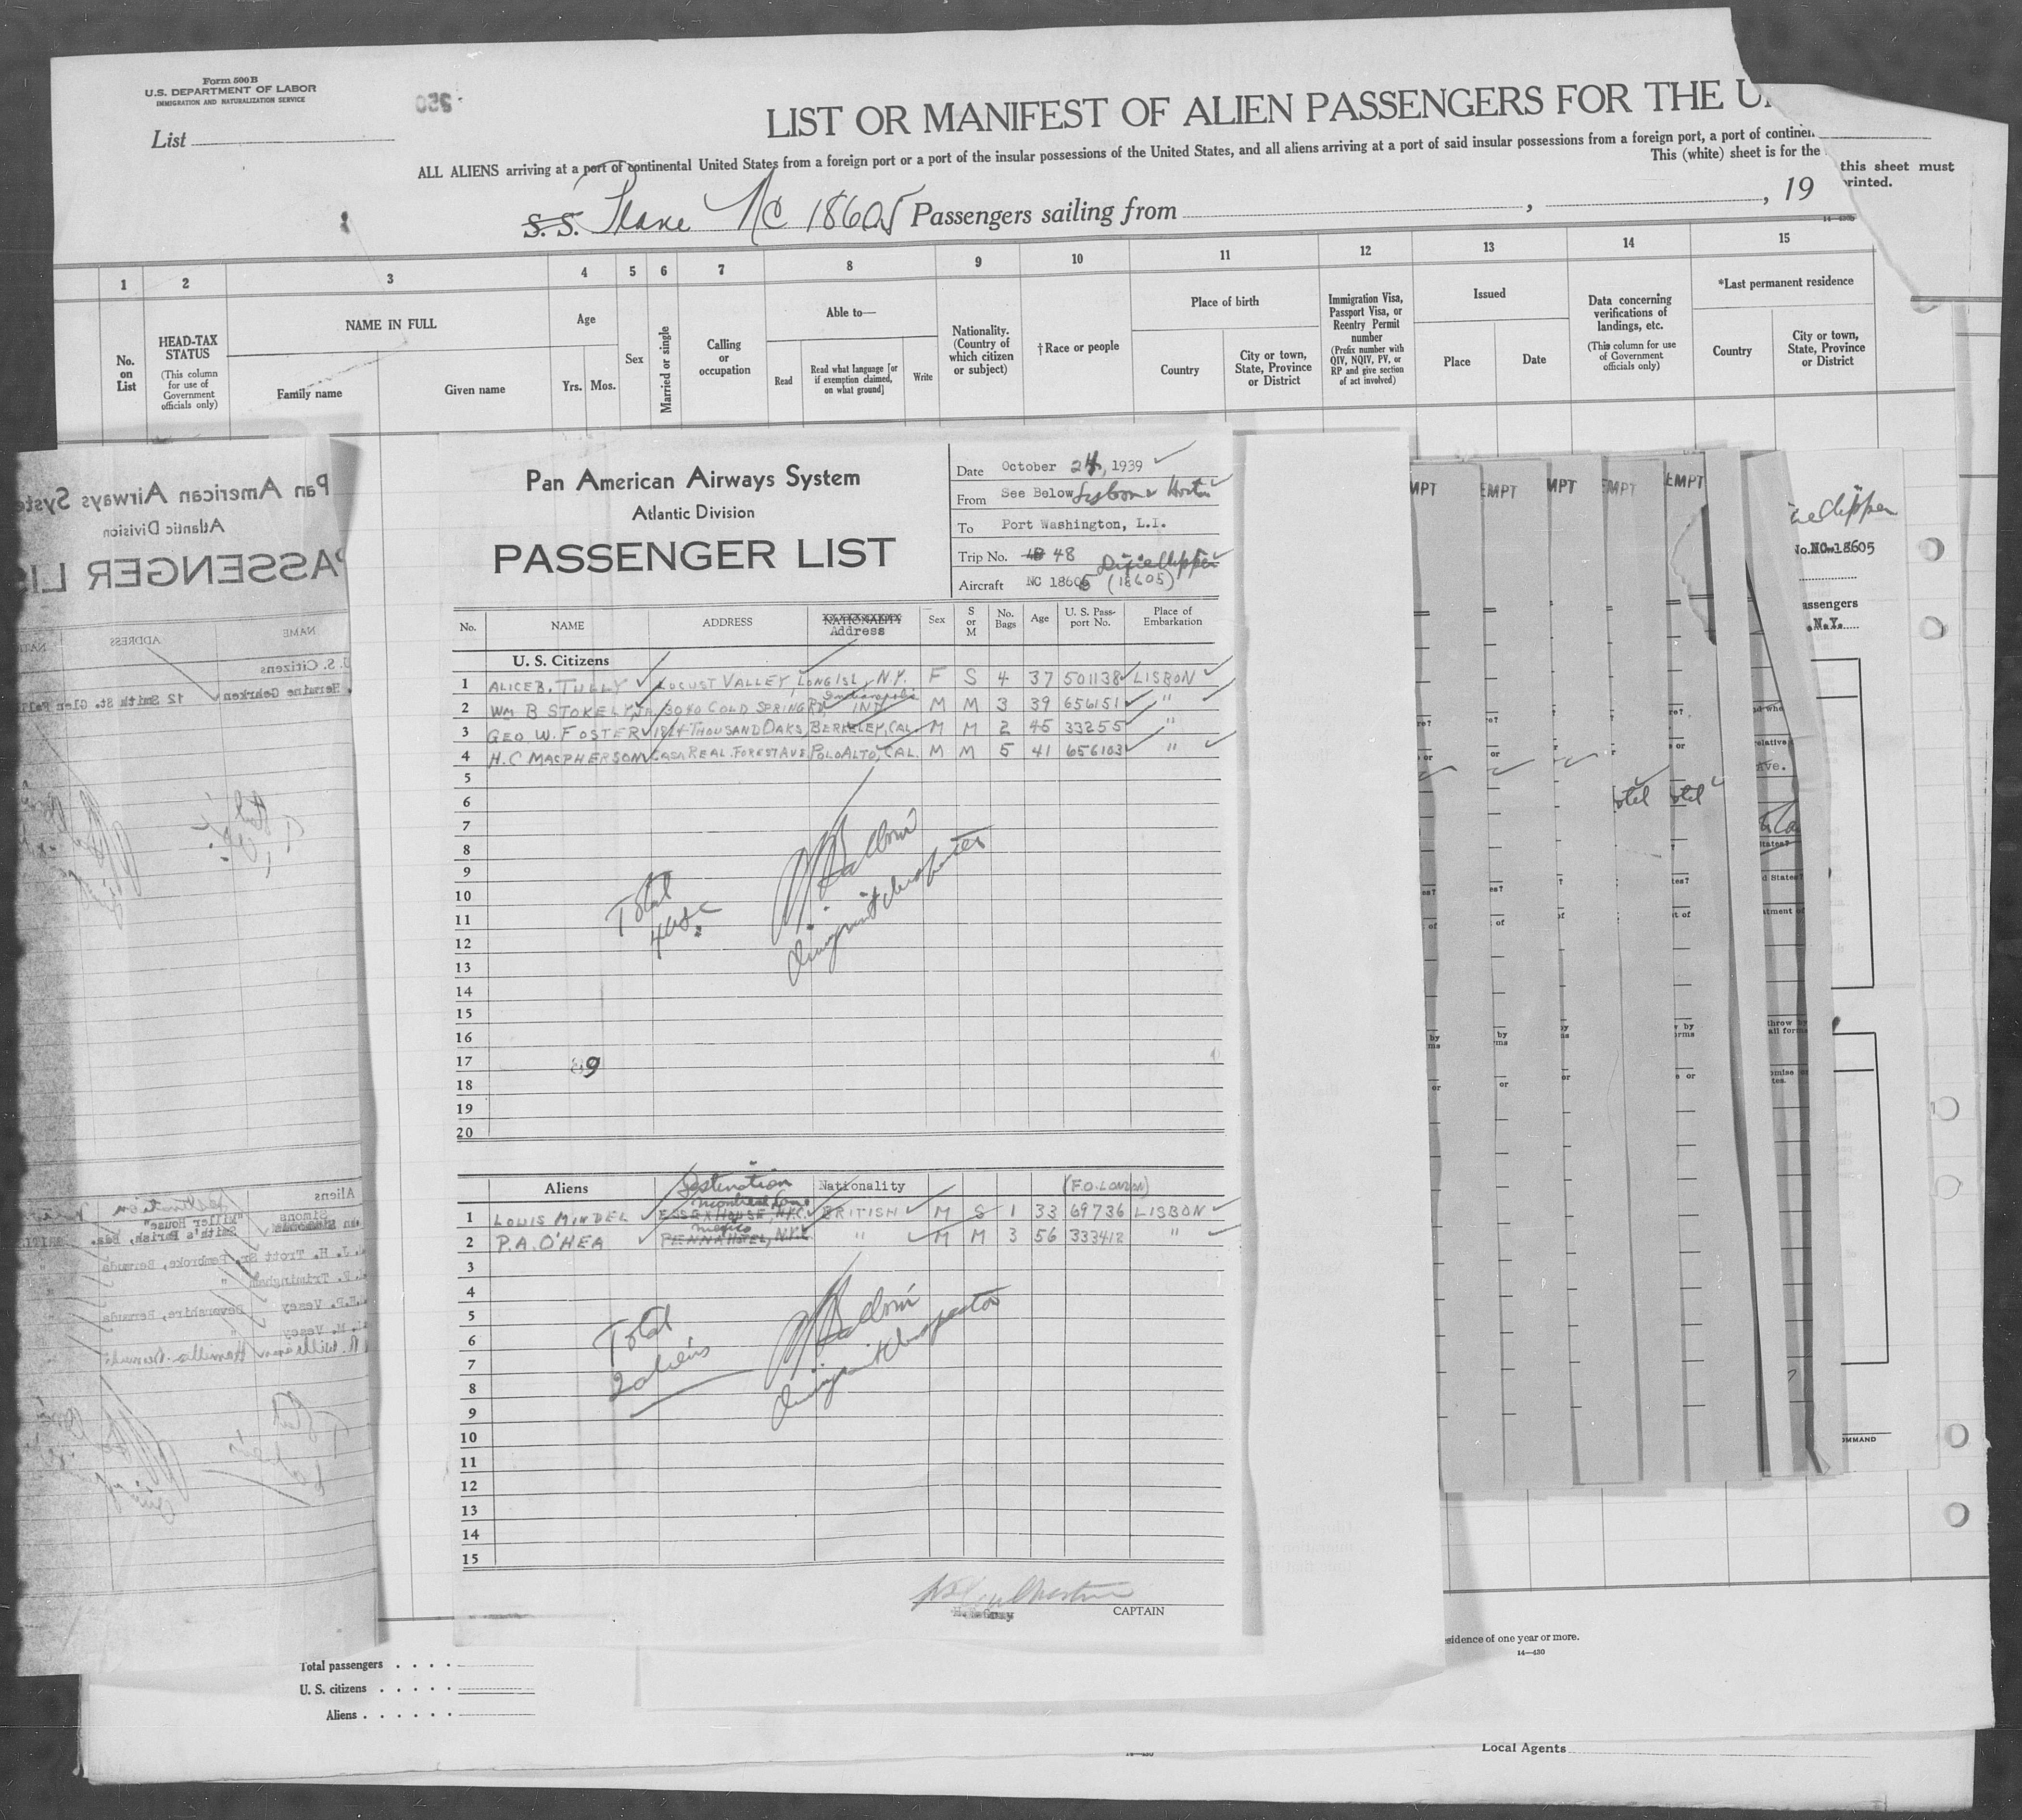 Form 500 B
U.S. DEPARTMENT OF LABOR
IMMIGRATION AND NATURALIZATION SERVICE
List
LIST OR MANIFEST OF ALIEN PASSENGERS FOR THE U
ALL ALIENS arriving at a port of continental United States from a foreign port or a port of the insular possessions of the United States, and all aliens arriving at a port of said insular possessions from a foreign port, a port of continen
This (white) sheet is for the
this sheet must
printed.
S. S. Plane NC 18605 Passengers sailing from , , 19
1 2 3 4 5 6 7 8 9 10 11 12 13 14 15
No. on List
HEAD-TAX STATUS
(This column for use of Government officials only)
NAME IN FULL
Family name
Given name
Age
Yrs. Mos.
Sex
Married or single
Calling or occupation
Able to—
Read
Read what language [or if exemption claimed, on what ground]
Write
Nationality. (Country of which citizen or subject)
†Race or people
Place of birth
Country
City or town, State, Province or District
Immigration Visa, Passport Visa, or Reentry Permit number
(Prefix number with QIV, NQIV, PV, or RP and give section of act involved)
Issued
Place
Date
Data concerning verifications of landings, etc.
(This column for use of Government officials only)
*Last permanent residence
Country
City or town, State, Province or District
Pan American Airways System
Atlantic Division
PASSENGER LIST
Date October 24, 1939
From See Below Lisbon & Horta
To Port Washington, L.I.
Trip No. 48 48 Dixie Clipper
Aircraft NC 18605 (18605)
No. NAME ADDRESS NATIONALITY Address Sex S or M No. Bags Age U. S. Passport No. Place of Embarkation
U. S. Citizens
1 ALICE B. TULLY LOCUST VALLEY, LONG ISL, N.Y. F S 4 37 501138 LISBON
2 WM B STOKELY, JR 3040 COLD SPRING RD, Indianapolis IND M M 3 39 656151 "
3 GEO W. FOSTER 1924 THOUSAND OAKS, BERKELEY, CAL. M M 2 45 33255 "
4 H.C MACPHERSON CASA REAL. FOREST AVE POLO ALTO, CAL. M M 5 41 656103 "
5
6
7
8
9
10
11
12
13
14
15
16
17
18
19
20
Total
4 USC
Immigrant Inspector
9
Aliens Destination Nationality (F.O. LONDON)
Montreal Can.
1 LOUIS MINDEL ESSEX HOUSE, N.Y.C. BRITISH M S 1 33 69736 LISBON
Mexico
2 P.A. O'HEA PENNA HOTEL, N.Y.C. " M M 3 56 333412 "
3
4
5
6
7
8
9
10
11
12
13
14
15
Total
2 aliens
Immigrant Inspector
CAPTAIN
Pan American Airways Syste
Atlantic Division
PASSENGER LIS
NAME ADDRESS
U. S. Citizens
Hermine Gehrken 12 Smith St. Glen
Aliens Destination
Simons "Willer House"
Smith's Parish, Bda.
J. H. Trott Sr. Pembroke, Bermuda
Trimingham "
Vesey Devonshire, Bermuda
H. Vesey "
R. Williams Hamilton Bermuda
MPT EMPT MPT EMPT EMPT
Clipper
No. NC-18605
assengers
N.Y.
Ave.
OMMAND
Total passengers
U. S. citizens
Aliens
sidence of one year or more.
14—430
Local Agents